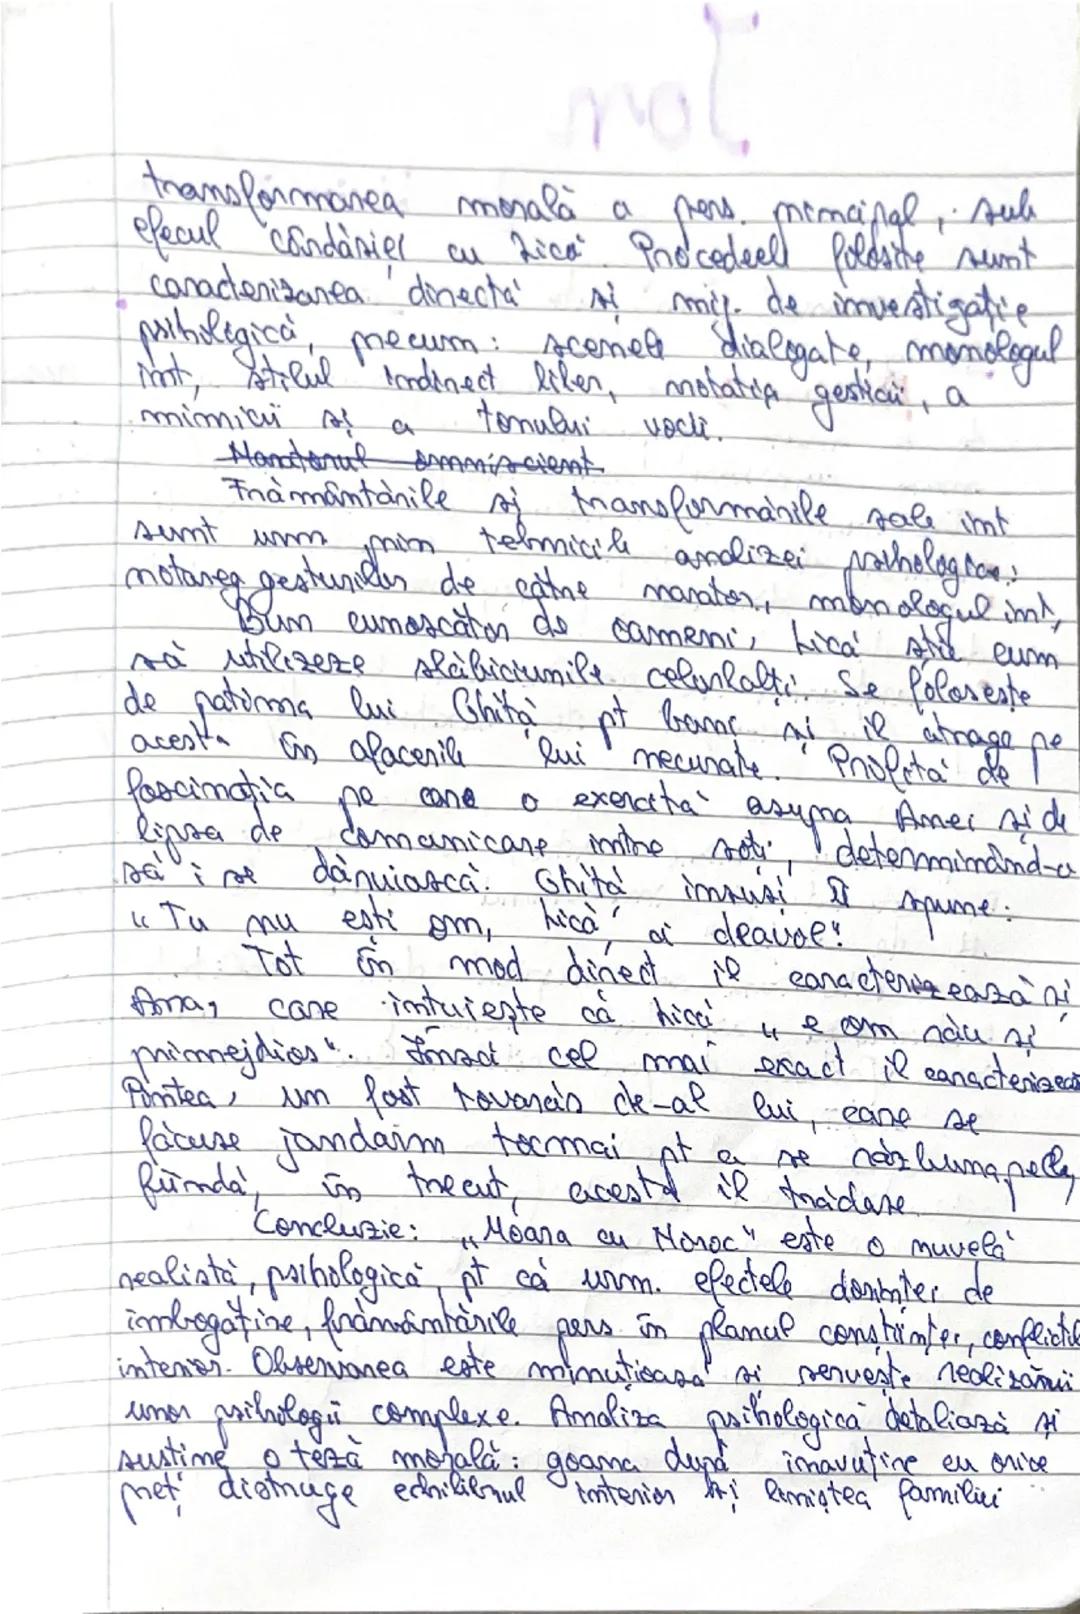 transformarea morală a pers. principal, sub
efecul cârdăsiei cu Lică. Procedeele folosite sunt
caracterizarea directă si mij. de investigatie
psihologică, precum: scenele dialogate, monologul
int, stilul indirect liber, notatia gesticii, a
mimicii si a tonului vocii.
Naratorul omniscient
Frământările si transformările sale int
sunt urm prin tehnicile analizei psihologice:
notarea gesturilor de către narator, monologul int,
Bun cunoscător de oameni, Lică stie cum
să utilizeze slăbiciunile celorlalti. Se foloseste
de patima lui Ghită pt bani si il atrage pe
acesta în afacerile lui necurate. Profită de
fascinatia pe care o exercită asupra Anei si de
lipsa de comunicare intre soti, determinând-o
să i se dăruiască. Ghită insusi îi spune:
"Tu nu esti om, Lică, ci deavol"!
Tot în mod direct il caracterizează si
Ana, care intuieste că Lică "e om rău si
primejdios". Însă cel mai exact il caracterizează
Pintea, un fost tovarăs de-al lui, care se
făcuse jandarm tocmai pt a se răzbuna pe el,
fiindă, în trecut, acesta il trădase.
Concluzie: "Moara cu Noroc" este o nuvelă
realistă, psihologică, pt că urm. efectele dorintei de
imbogătire, frământările pers. în planul constiintei, conflictele
interior. Observarea este minutioasă si serveste realizării
unor psihologii complexe. Analiza psihologică detaliază si
sustine o teză morală: goana după inavutire cu orice
pret distruge echilibrul interior si linistea familiei